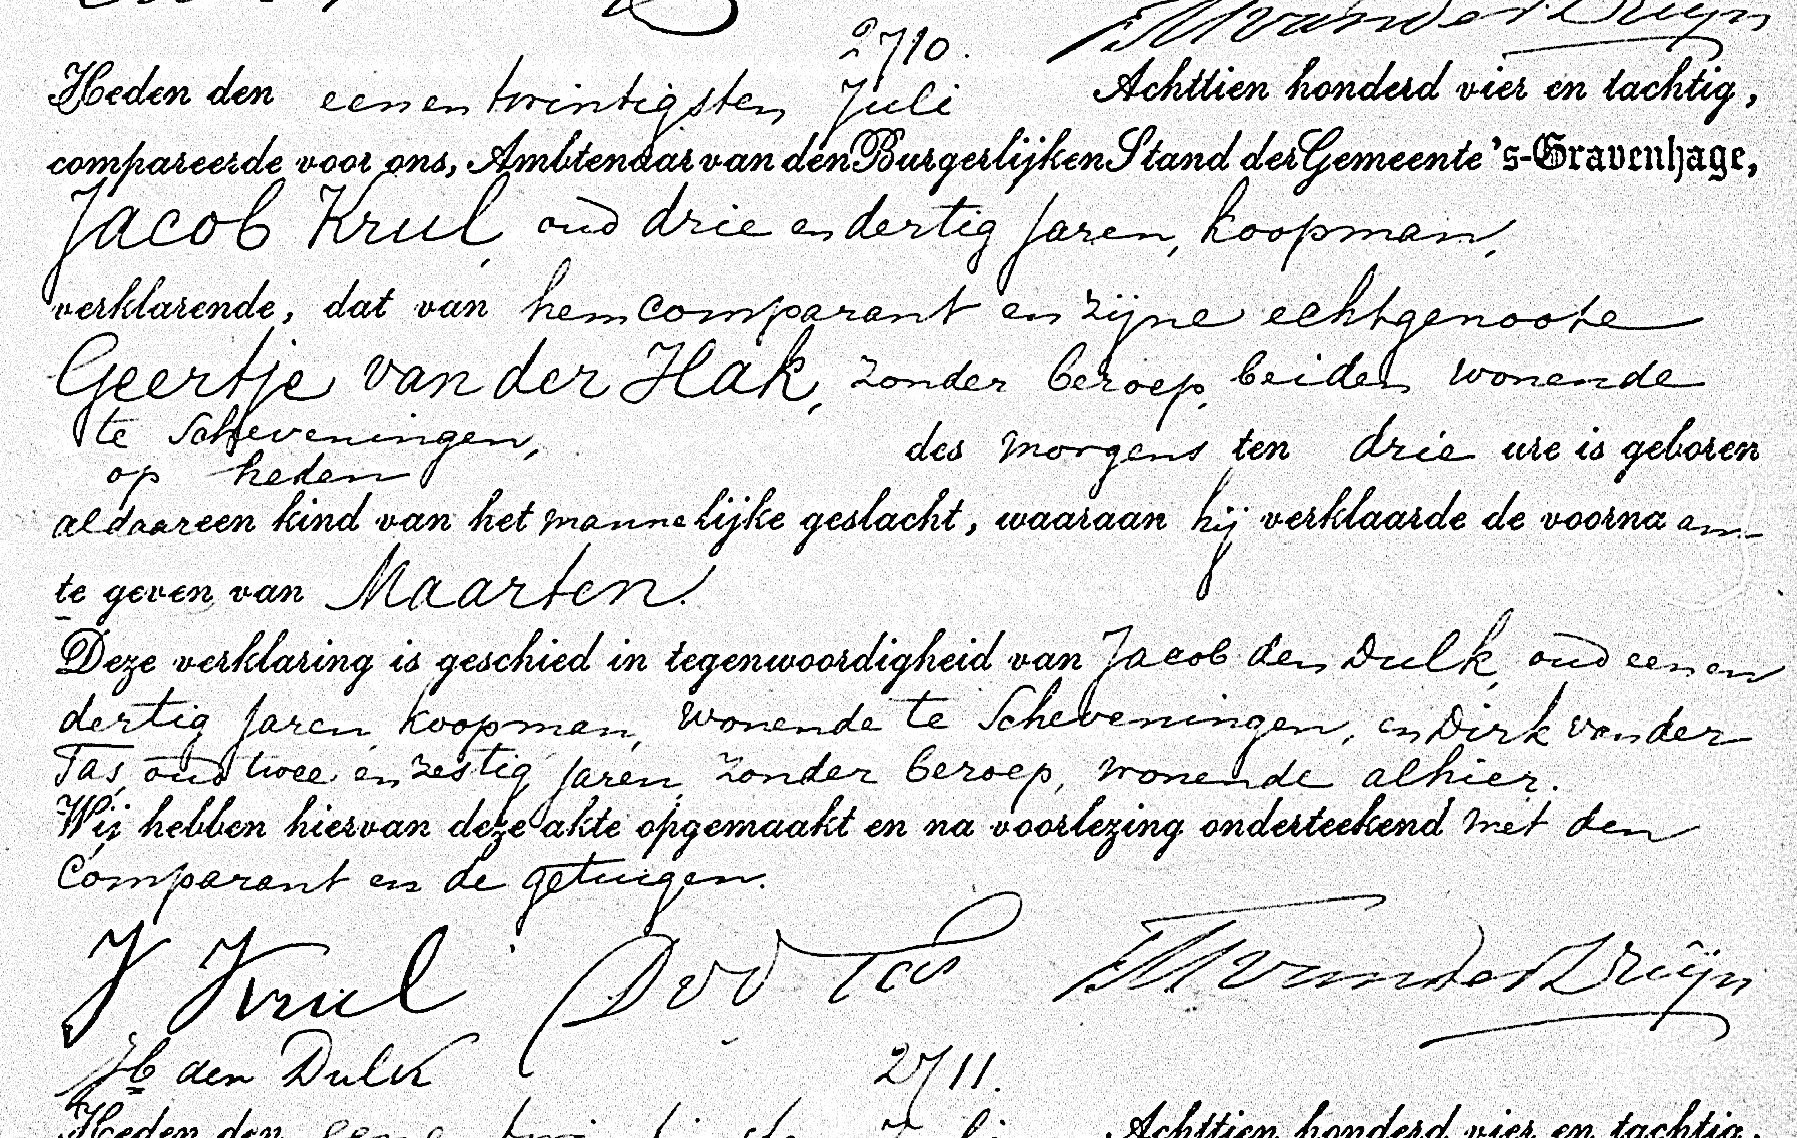 2710.
Heden den eenentwintigsten Juli Achttien honderd vier en tachtig,
compareerde voor ons, Ambtenaar van den Burgerlijken Stand der Gemeente 's-Gravenhage,
Jacob Krul, oud drie en dertig jaren, koopman,
verklarende, dat van hem comparant en zijne echtgenoote
Geertje van der Hak, zonder beroep, beiden wonende
te Scheveningen, des morgens ten drie ure is geboren
op heden
aldaar een kind van het mannelijke geslacht, waaraan hij verklaarde de voornaam
te geven van Maarten.
Deze verklaring is geschied in tegenwoordigheid van Jacob den Dulk, oud een en
dertig jaren, koopman, wonende te Scheveningen, en Dirk van der
Tas, oud twee en zestig jaren, zonder beroep, wonende alhier.
Wij hebben hiervan deze akte opgemaakt en na voorlezing onderteekend met den
Comparant en de getuigen.
J Krul D v d Tas
Jb den Dulk 2711.
Heden den Juli Achttien honderd vier en tachtig,